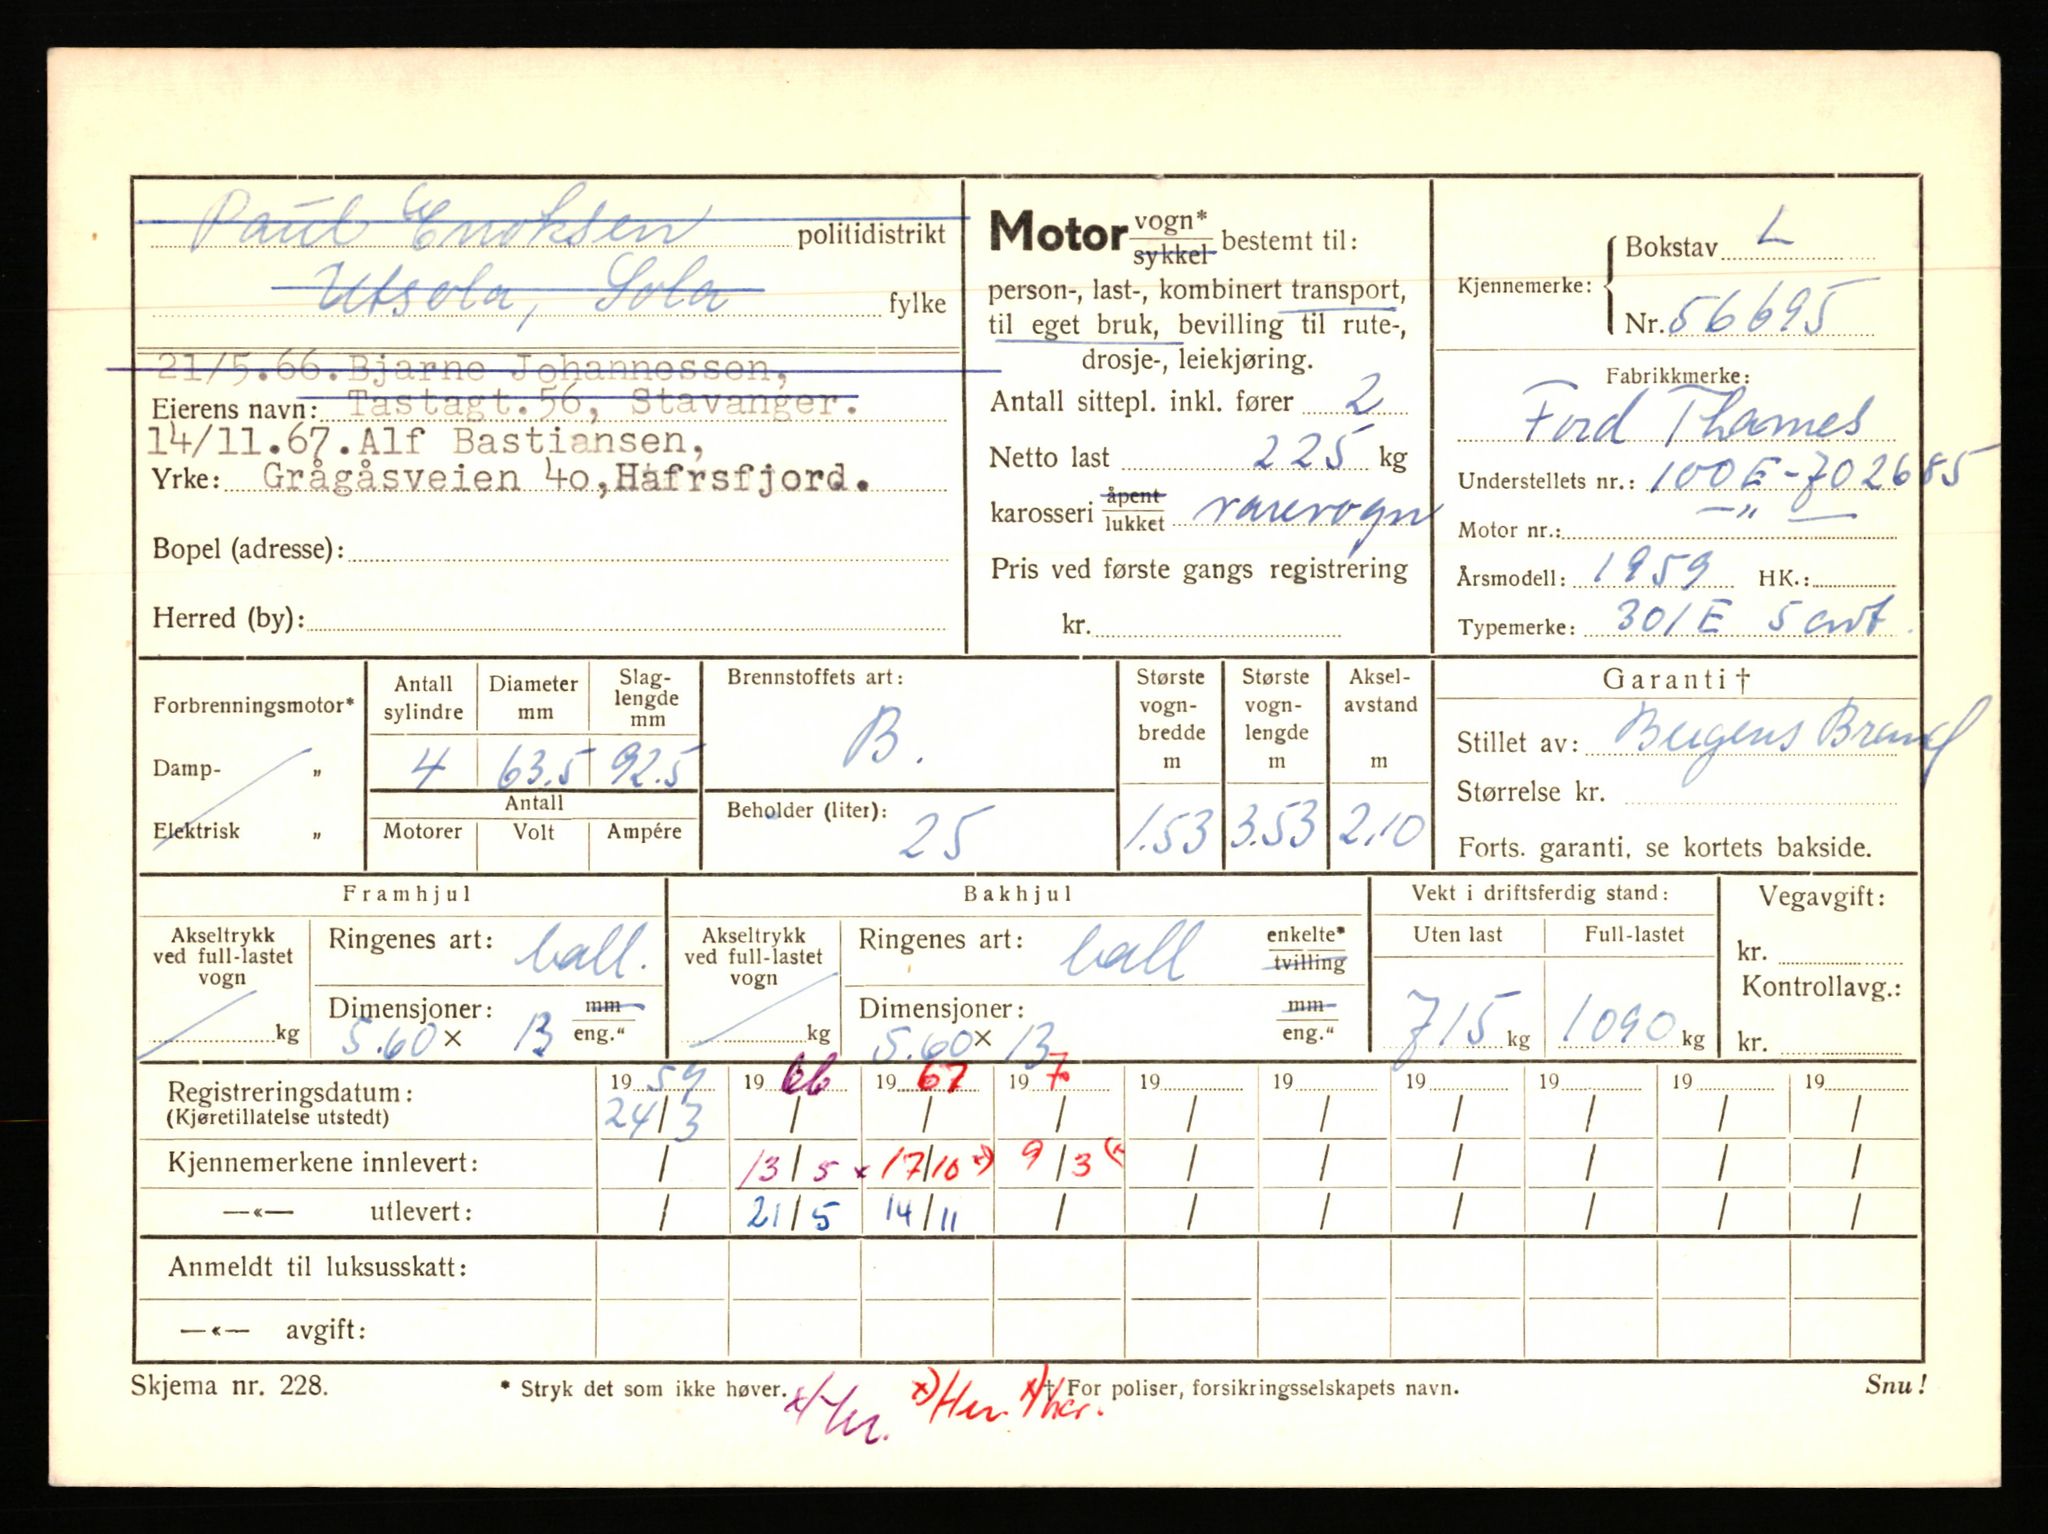 Paul Enoksen politidistrikt
Utsola, Sola fylke
21/5.66. Bjarne Johannessen,
Eierens navn: Tastagt. 56, Stavanger.
14/11.67. Alf Bastiansen,
Yrke: Grågåsveien 4o, Hafrsfjord.
Bopel (adresse):
Herred (by):
Motor vogn* sykkel bestemt til:
person-, last-, kombinert transport,
til eget bruk, bevilling til rute-,
drosje-, leiekjøring.
Antall sittepl. inkl. fører 2
Netto last 225 kg
karosseri åpent lukket varevogn
Pris ved første gangs registrering
kr.
Kjennemerke: Bokstav L
Nr. 56695
Fabrikkmerke:
Ford Thames
Understellets nr.: 100E-702685
Motor nr.: — „ —
Årsmodell: 1959 HK.:
Typemerke: 301E 5 cwt.
Forbrenningsmotor*
Damp- „
Elektrisk „
Antall sylindre
Diameter mm
Slaglengde mm
4 63.5 92.5
Antall
Motorer Volt Ampére
Brennstoffets art:
B.
Beholder (liter): 25
Største vognbredde m
1.53
Største vognlengde m
3.53
Akselavstand m
2.10
Garanti †
Stillet av: Bergens Brand
Størrelse kr.
Forts. garanti, se kortets bakside.
Framhjul
Akseltrykk ved full-lastet vogn
kg
Ringenes art: ball.
Dimensjoner: mm
5.60 × 13 eng."
Bakhjul
Akseltrykk ved full-lastet vogn
kg
Ringenes art: ball enkelte* tvilling
Dimensjoner: mm
5.60 × 13 eng."
Vekt i driftsferdig stand:
Uten last Full-lastet
715 kg 1090 kg
Vegavgift:
kr.
Kontrollavg.:
kr.
Registreringsdatum: 19 59 19 66 19 67 19 70 19 19 19 19 19 19
(Kjøretillatelse utstedt) 24/3 / / / / / / / / /
Kjennemerkene innlevert: / 13/5 x 17/10 x) 9/3 (x / / / / / /
—«— utlevert: / 21/5 14/11 / / / / / / /
Anmeldt til luksusskatt:
—«— avgift:
Skjema nr. 228. * Stryk det som ikke høver. † For poliser, forsikringsselskapets navn. Snu!